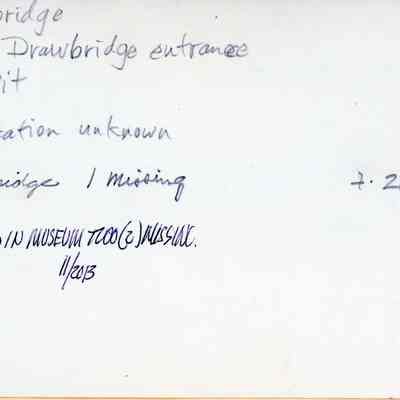 bridge
Drawbridge entrance
it
ation unknown
idge 1 missing 7.2
IN MUSEUM TWO (2) MISSING.
11/2013